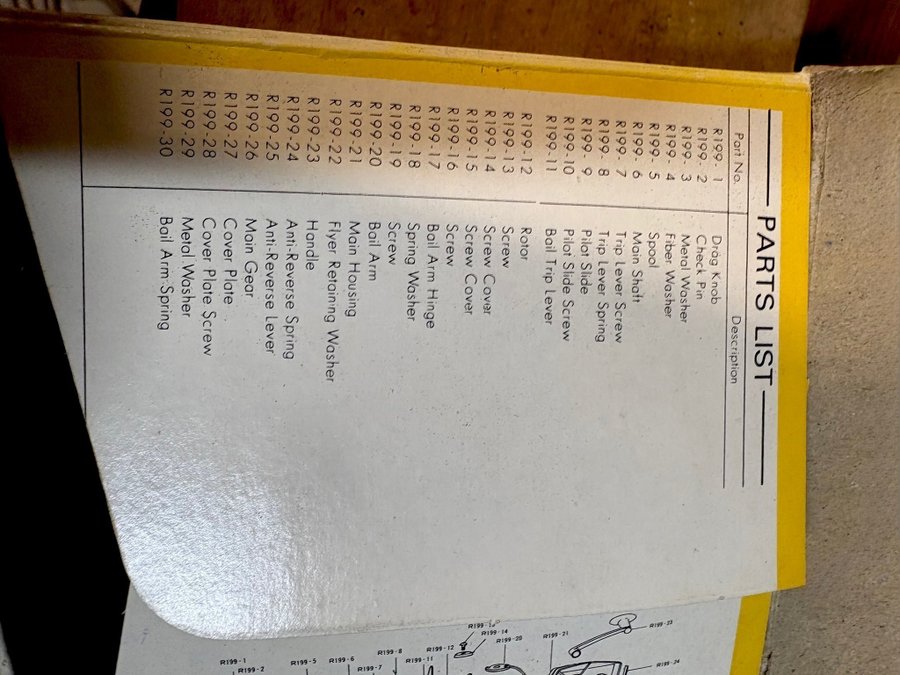 PARTS LIST
Part No. Description
R199- 1 Drag Knob
R199- 2 Check Pin
R199- 3 Metal Washer
R199- 4 Fiber Washer
R199- 5 Spool
R199- 6 Main Shaft
R199- 7 Trip Lever Screw
R199- 8 Trip Lever Spring
R199- 9 Pilot Slide
R199-10 Pilot Slide Screw
R199-11 Bail Trip Lever
R199-12 Rotor
R199-13 Screw
R199-14 Screw Cover
R199-15 Screw Cover
R199-16 Screw
R199-17 Bail Arm Hinge
R199-18 Spring Washer
R199-19 Screw
R199-20 Bail Arm
R199-21 Main Housing
R199-22 Flyer Retaining Washer
R199-23 Handle
R199-24 Anti-Reverse Spring
R199-25 Anti-Reverse Lever
R199-26 Main Gear
R199-27 Cover Plate
R199-28 Cover Plate Screw
R199-29 Metal Washer
R199-30 Bail Arm Spring
R199-14
R199-20
R199-21
R199-23
R199-24
R199-1
R199-2
R199-5
R199-6
R199-7
R199-8
R199-11
R199-12